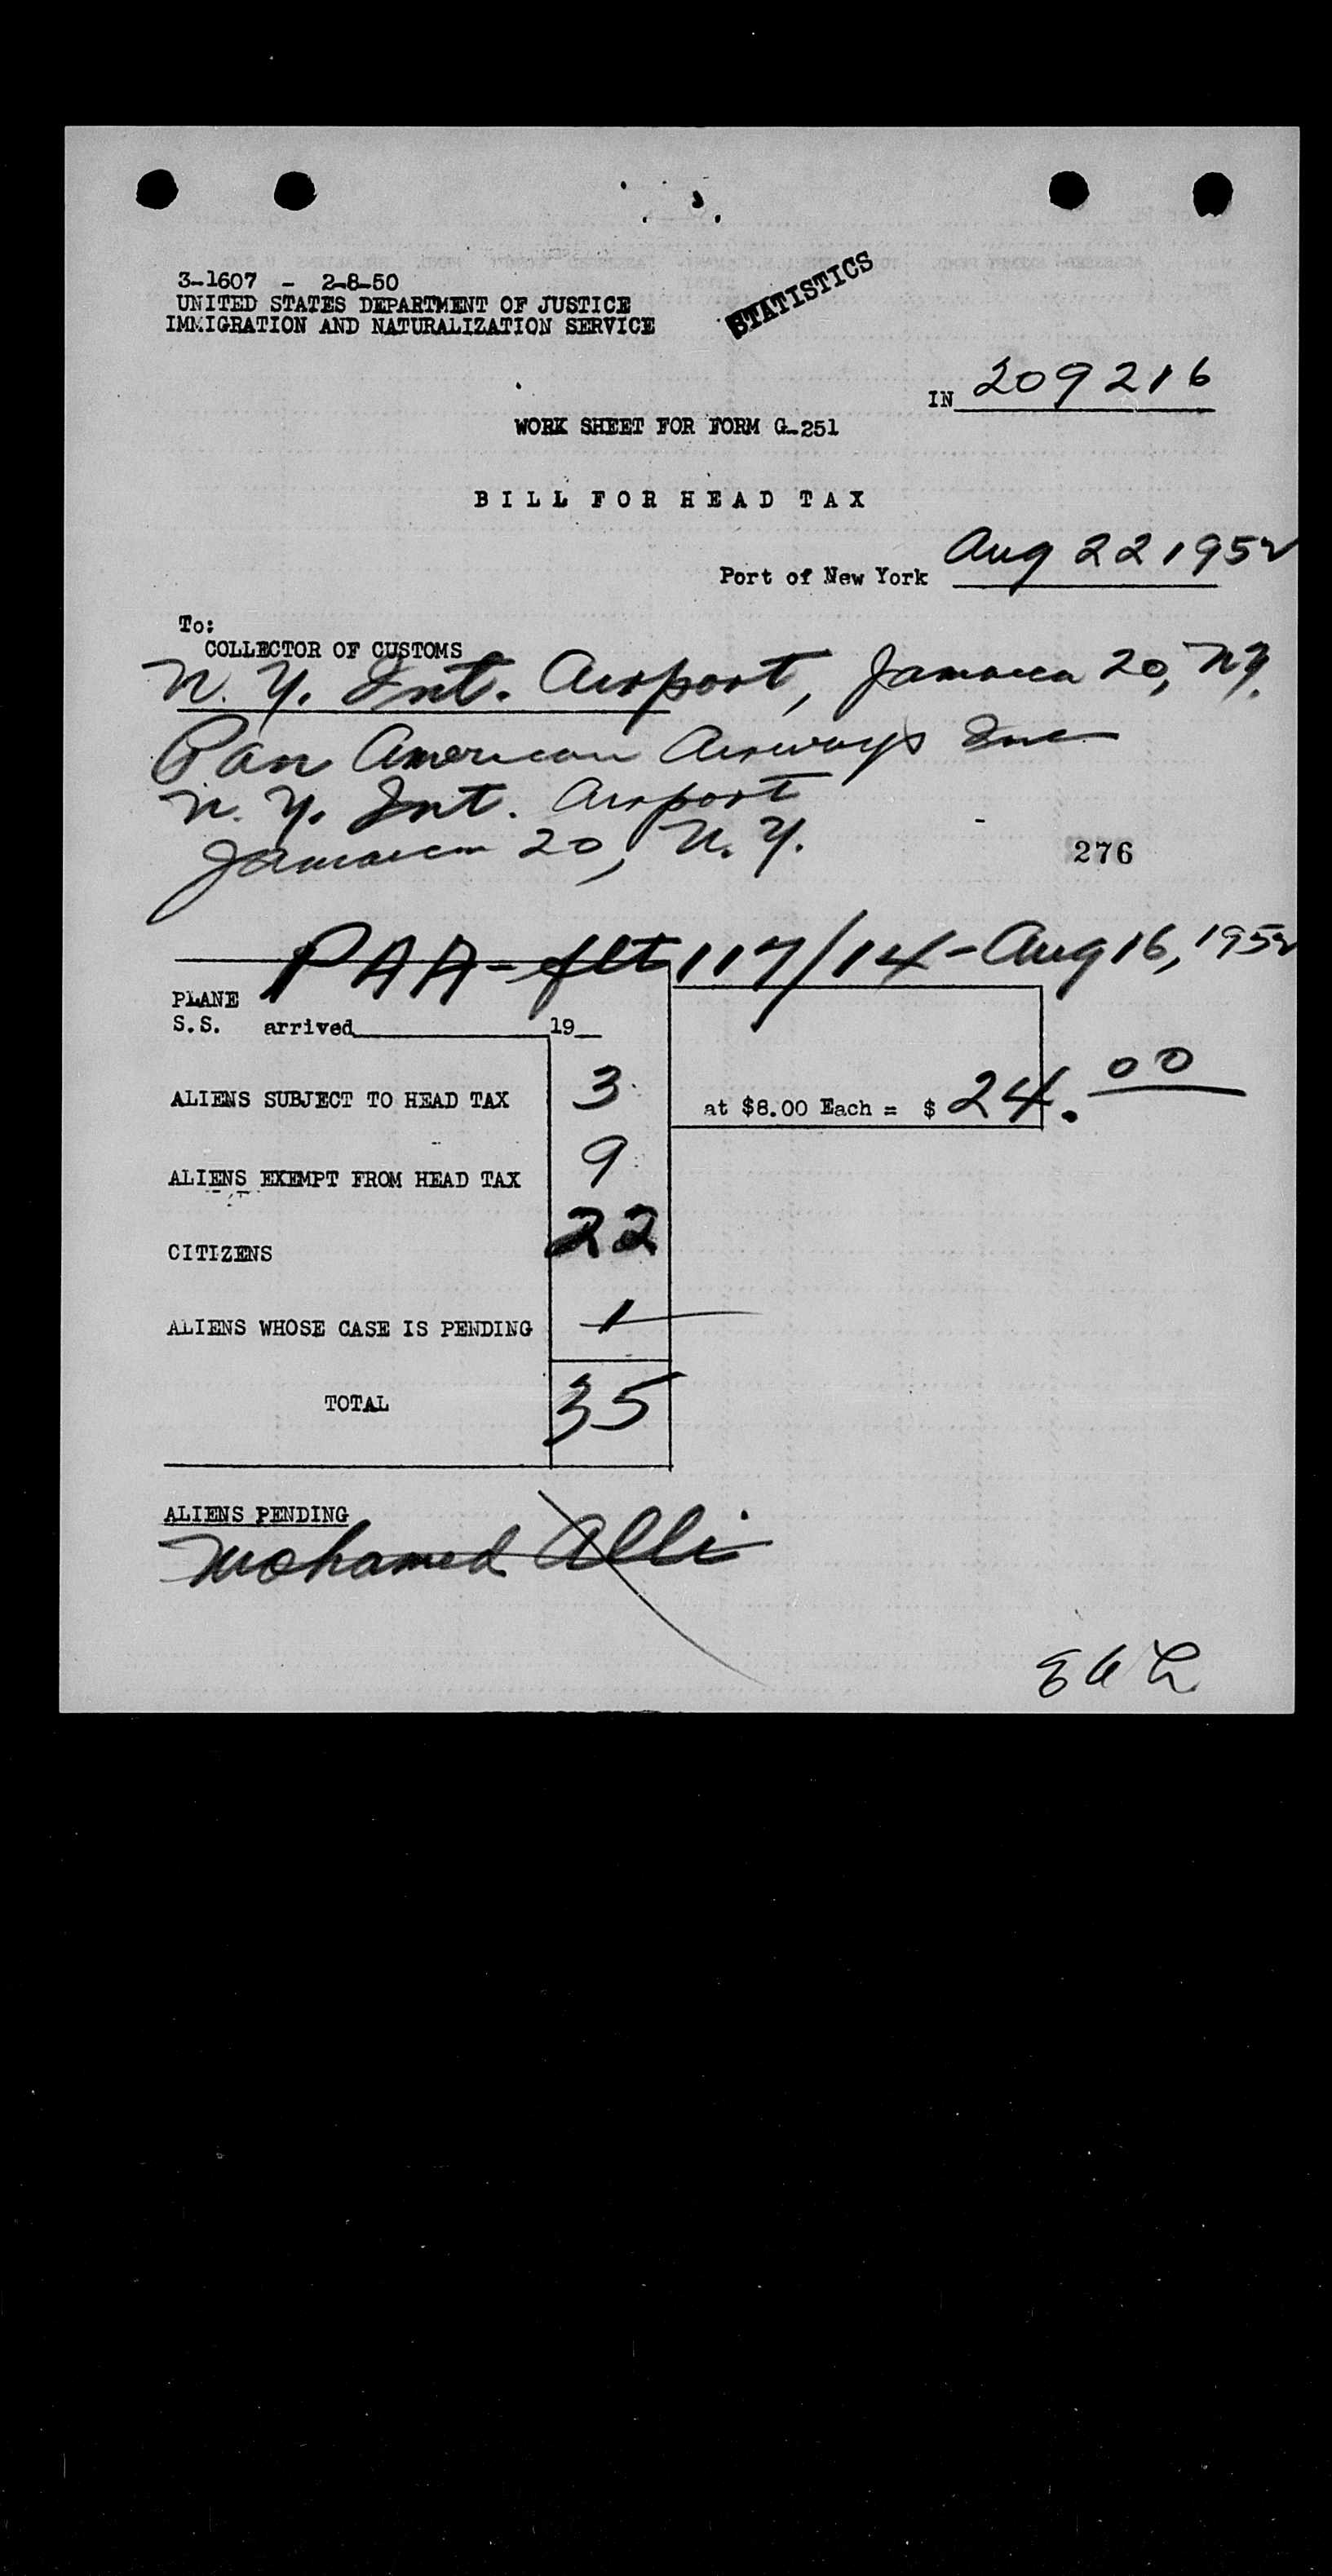 3-1607 - 2-8-50
UNITED STATES DEPARTMENT OF JUSTICE
IMMIGRATION AND NATURALIZATION SERVICE
STATISTICS
IN 209216
WORK SHEET FOR FORM G-251
BILL FOR HEAD TAX
Port of New York Aug 22 1952
To:
COLLECTOR OF CUSTOMS
N. Y. Int. Airport, Jamaica 20, N.Y.
Pan American Airways Inc
N. Y. Int. Airport
Jamaica 20, N. Y.
276
PAA-flt 117/14-Aug 16, 1952
PLANE
S.S. arrived 19
ALIENS SUBJECT TO HEAD TAX 3 at $8.00 Each = $ 24.00
ALIENS EXEMPT FROM HEAD TAX 9
CITIZENS 22
ALIENS WHOSE CASE IS PENDING 1
TOTAL 35
ALIENS PENDING
Mohamed Alli